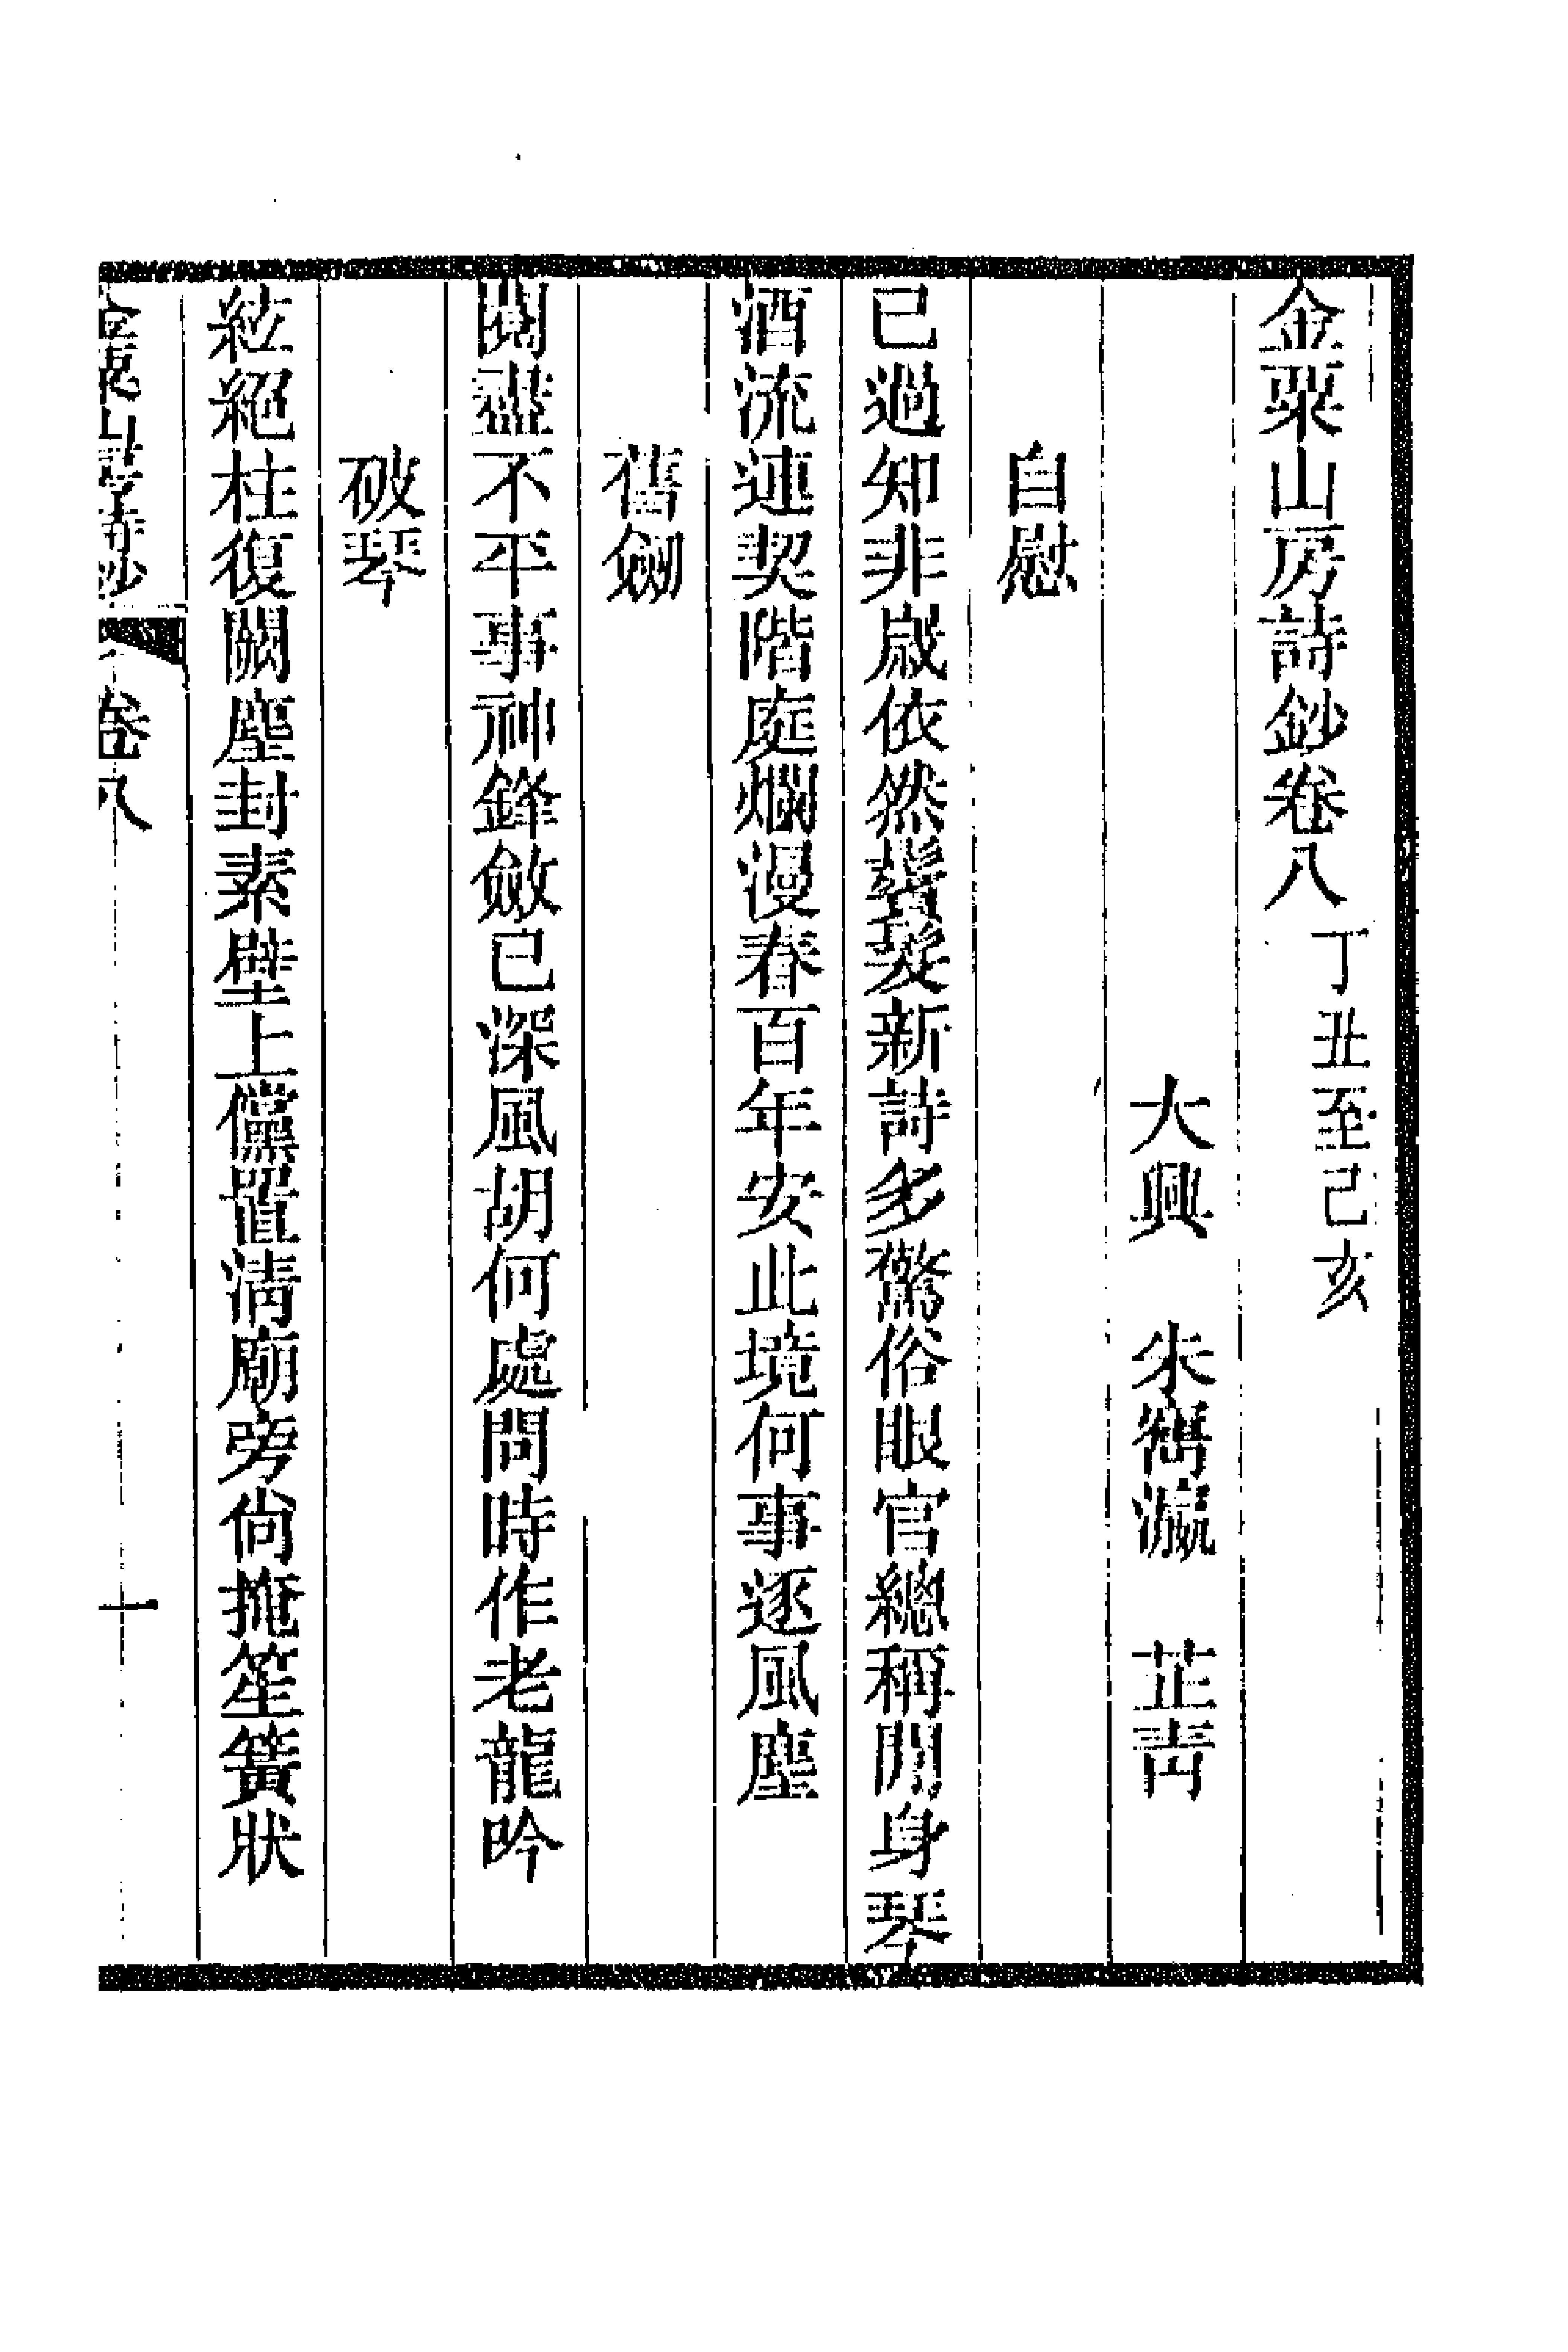 金粟山房詩鈔卷八丁丑至己亥
大興　朱寯瀛　芷靑
自慰
已過知非歲依然鬢髮新詩多驚俗眼官總稱閒身琴
酒流連契階庭爛漫春百年安此境何事逐風塵
舊劒
閱盡不平事神鋒斂已深風胡何處問時作老龍吟
破琴
絃絕柱復闕塵封素壁上儻置淸廟旁尙掩笙簧狀
金粟山房詩鈔　卷八　一